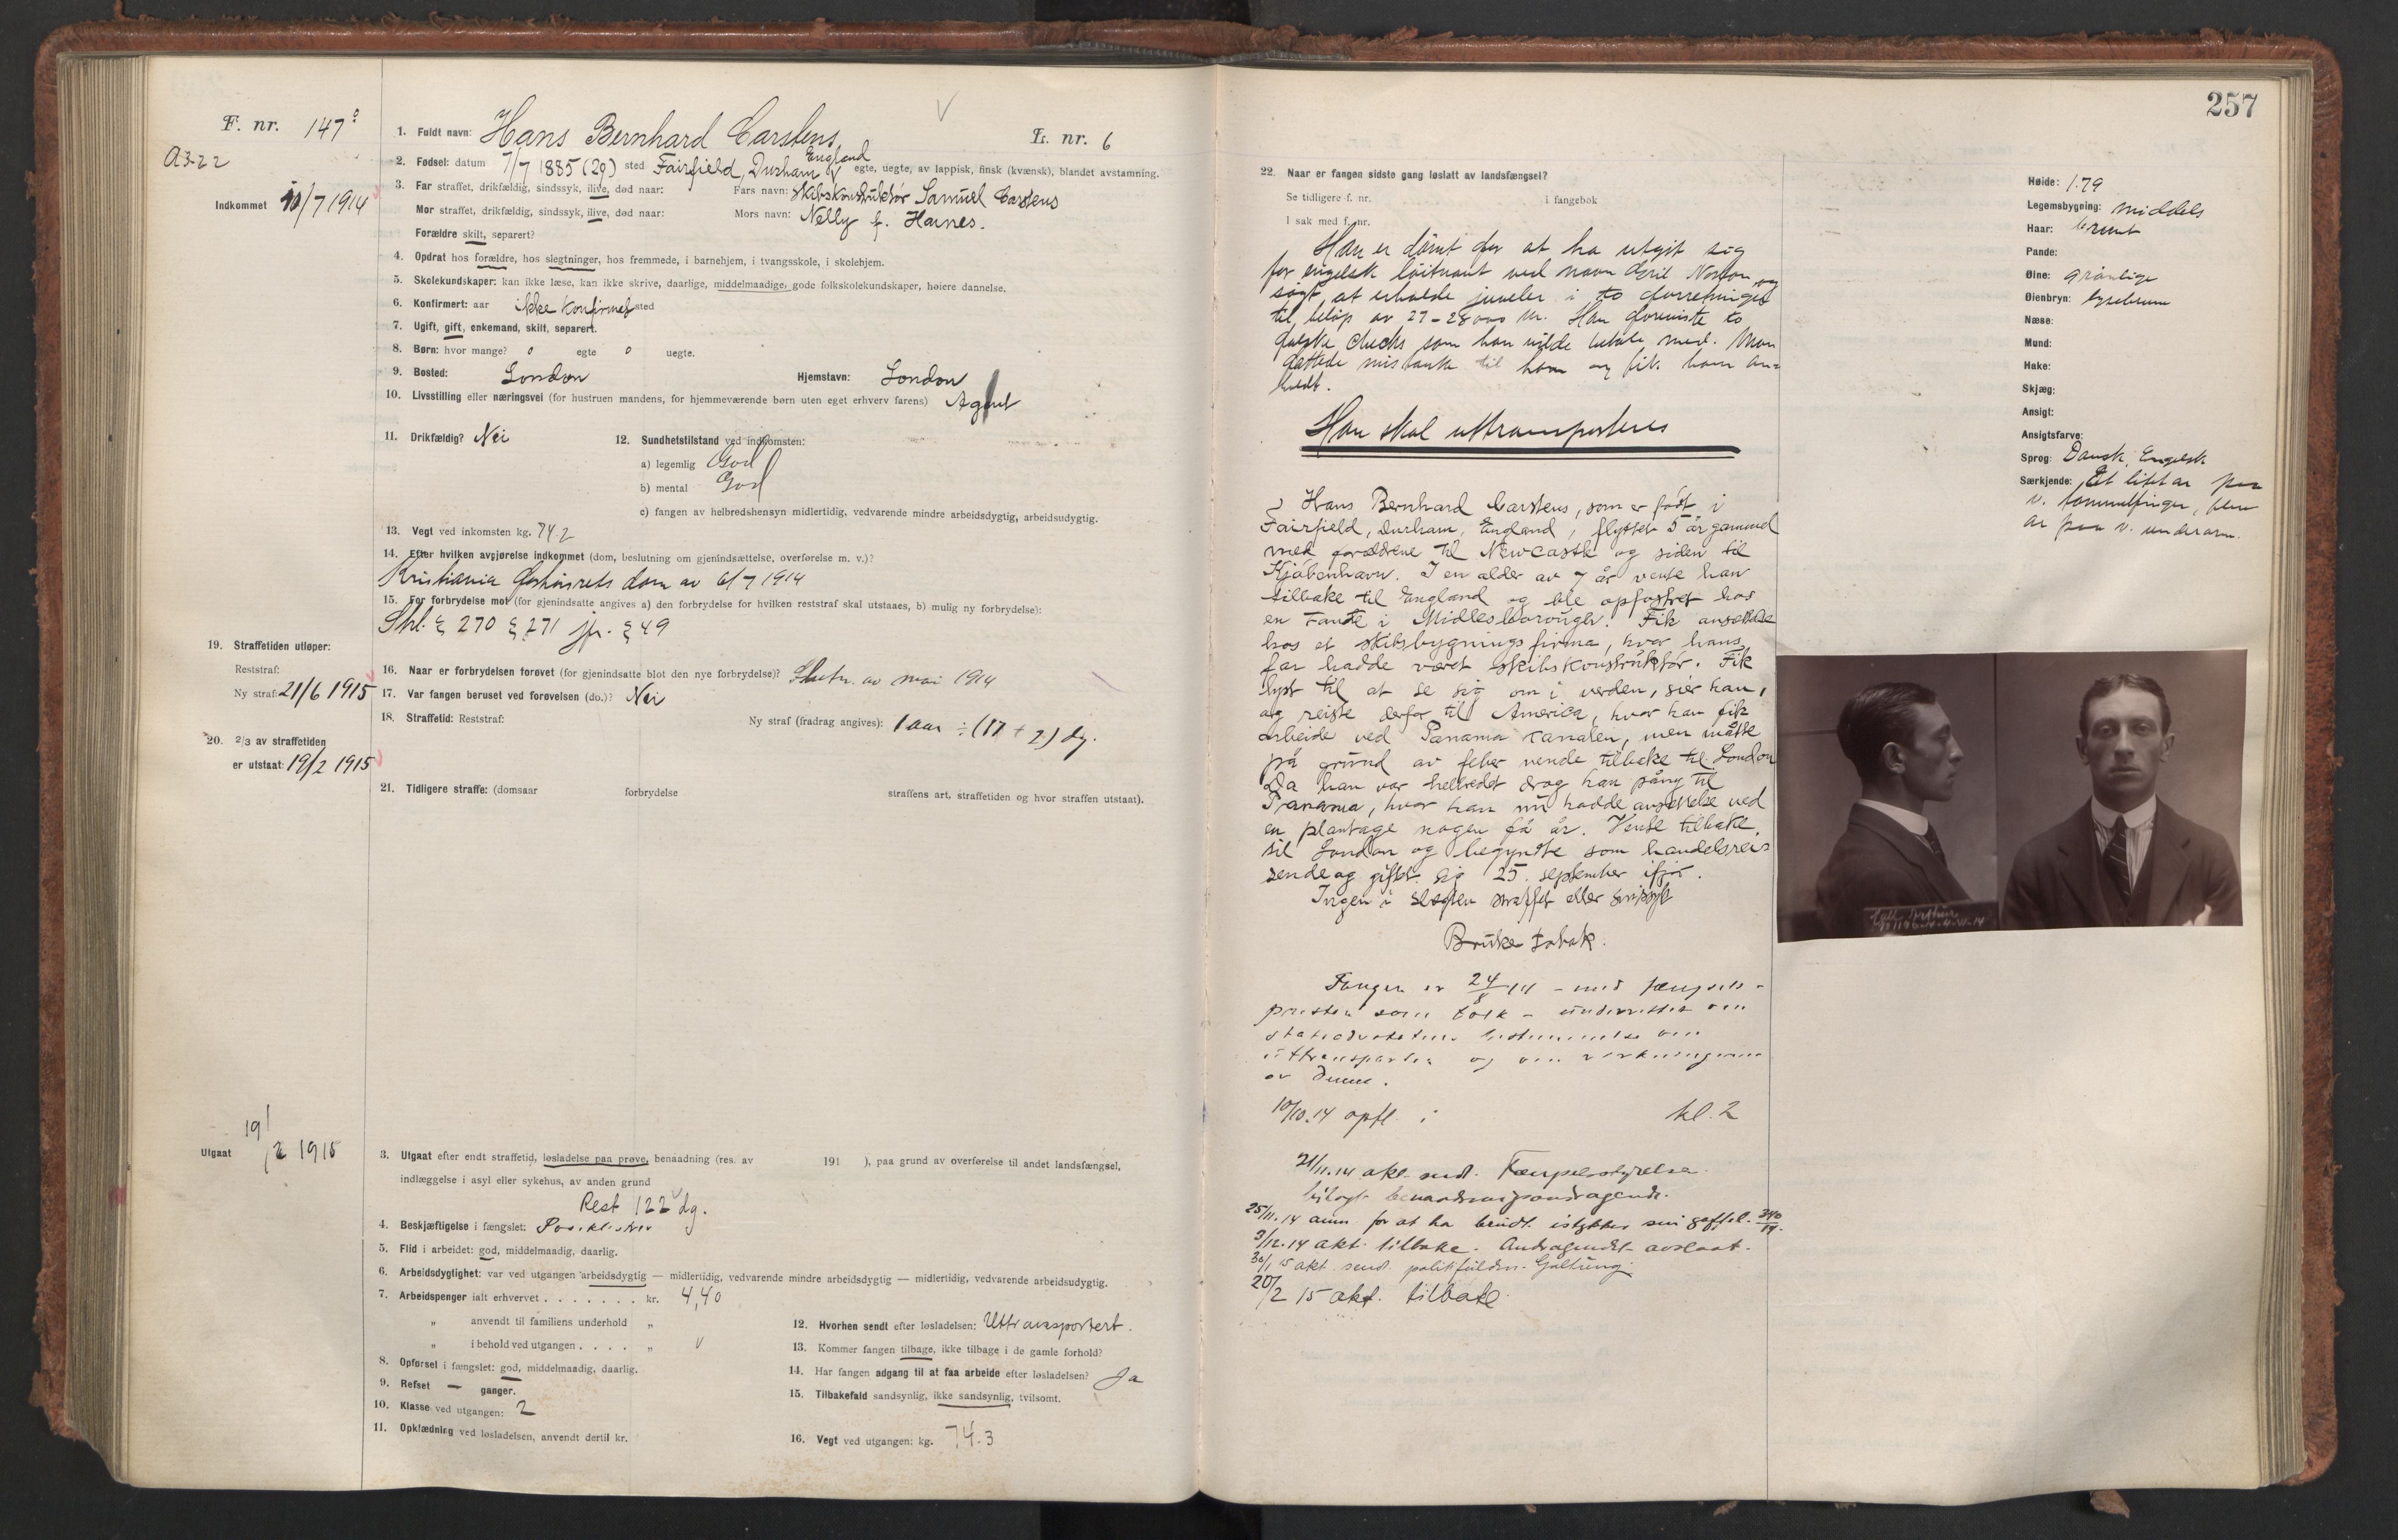 F. nr. 147
A 3-22
Indkommet 10/7 1914
L. nr. 6
1. Fuldt navn: Hans Bernhard Carstens
2. Fødsel: datum 7/7 1885 (29) sted Fairfield, Durham England egte, uegte, av lappisk, finsk (kvænsk), blandet avstamning.
3. Far straffet, drikfældig, sindssyk, ilive, død naar: Fars navn: Skibskonstruktør Samuel Carstens
Mor straffet, drikfældig, sindssyk, ilive, død naar: Mors navn: Nelly f. Haines.
Forældre skilt, separert?
4. Opdrat hos forældre, hos slegtninger, hos fremmede, i barnehjem, i tvangsskole, i skolehjem.
5. Skolekundskaper: kan ikke læse, kan ikke skrive, daarlige, middelmaadige, gode folkskolekundskaper, høiere dannelse.
6. Konfirmert: aar ikke konfirmet sted
7. Ugift, gift, enkemand, skilt, separert.
8. Børn: hvor mange? 0 egte 0 uegte.
9. Bosted: London Hjemstavn: London
10. Livsstilling eller næringsvei (for hustruen mandens, for hjemmeværende børn uten eget erhverv farens) Agent
11. Drikfældig? Nei 12. Sundhetstilstand ved indkomsten:
a) legemlig God
b) mental God
c) fangen av helbredshensyn midlertidig, vedvarende mindre arbeidsdygtig, arbeidsudygtig.
13. Vegt ved inkomsten kg. 74.2
14. Efter hvilken avgjørelse indkommet (dom, beslutning om gjenindsættelse, overførelse m. v.)?
Kristiania forhørsrets dom av 6/7 1914
15. For forbrydelse mot (for gjenindsatte angives a) den forbrydelse for hvilken reststraf skal utstaaes, b) mulig ny forbrydelse):
Strl. § 270 § 271 jfr. § 49
19. Straffetiden utløper:
Reststraf:
Ny straf: 21/6 1915
16. Naar er forbrydelsen forøvet (for gjenindsatte blot den nye forbrydelse)? Slutn. av mai 1914
17. Var fangen beruset ved forøvelsen (do.)? Nei
18. Straffetid: Reststraf: Ny straf (fradrag angives): 1 aar ÷ (17 + 2) dg.
20. 2/3 av straffetiden
er utstaat: 19/2 1915
21. Tidligere straffe: (domsaar forbrydelse straffens art, straffetiden og hvor straffen utstaat).
Utgaat 19/2 1915
3. Utgaat efter endt straffetid, løsladelse paa prøve, benaadning (res. av 191 ), paa grund av overførelse til andet landsfængsel,
indlæggelse i asyl eller sykehus, av anden grund
Rest 122 dg.
4. Beskjæftigelse i fængslet:
5. Flid i arbeidet: god, middelmaadig, daarlig.
6. Arbeidsdygtighet: var ved utgangen arbeidsdygtig — midlertidig, vedvarende mindre arbeidsdygtig — midlertidig, vedvarende arbeidsudygtig.
7. Arbeidspenger ialt erhvervet . . . . . . . kr. 4,40
„ anvendt til familiens underhold „
„ i behold ved utgangen . . . . „
8. Opførsel i fængslet: god, middelmaadig, daarlig.
9. Refset — ganger.
10. Klasse ved utgangen: 2
11. Opklædning ved løsladelsen, anvendt dertil kr.
12. Hvorhen sendt efter løsladelsen: Uttransportert.
13. Kommer fangen tilbage, ikke tilbage i de gamle forhold?
14. Har fangen adgang til at faa arbeide efter løsladelsen? Ja
15. Tilbakefald sandsynlig, ikke sandsynlig, tvilsomt.
16. Vegt ved utgangen: kg. 74.3
257
22. Naar er fangen sidste gang løslatt av landsfængsel?
Se tidligere f. nr. i fangebok
I sak med f. nr.
Han er dømt for at ha utgit sig
for engelsk løitnant ved navn Norton og
søgt at erholde juveler i to forretninger
til beløp av 27-28000 kr. Han foreviste to
falske checks som han vilde betale med. Man
fattede mistanke til ham og fik ham an-
holdt.
Han skal uttransporteres
Hans Bernhard Carstens, som er født i
Fairfield, Durham, England, flyttet 5 år gammel
med forældrene til Newcastle og siden til
Kjøbenhavn. I en alder av 7 år vente han
tilbake til England og ble opfostret hos
en Tante i Midlesborough. Fik ansettelse
hos et skibsbygningsfirma, hvor hans
far hadde været skibskonstruktør. Fik
lyst til at se sig om i verden, sier han,
og reiste derfor til America, hvor han fik
arbeide ved Panama canalen, men måtte
på grund av feber vende tilbake til London
Da han var helbredet drog han påny til
Panama, hvor han nu hadde ansettelse ved
en plantage nogen få år. Vente tilbake
til London og begyndte som handelsrei-
sende og giftet sig 25. september ifjor.
Ingen i slegten straffet eller sinssyk
Bruke tobak.
Fangen er 24/8 14 - med fængsels-
presten som tolk - underrettet om
statsadvokatens bestemmelse om
uttransporten og om virkningerne
av denne.
10/10.14 opfl. i kl. 2
21/11.14 akt. send. Fængselsstyrelsen
bilagt benaadningsandragende.
25/11.14 anm for at ha brudt istykker sin gaffel. 340/14.
3/12.14 akt. tilbake. Andragendet avslaat.
30/1 15 akt. send. politifuldm. Galtung
20/2 15 akt. tilbake
Høide: 1.79
Legemsbygning: middels
Haar: brunt
Pande:
Øine: grønlige
Øienbryn: lysebrune
Næse:
Mund:
Hake:
Skjæg:
Ansigt:
Ansigtsfarve:
Sprog: Dansk, Engelsk
Særkjende: Et litet ar paa
v. tommelfinger, flere
ar paa v. underarm.